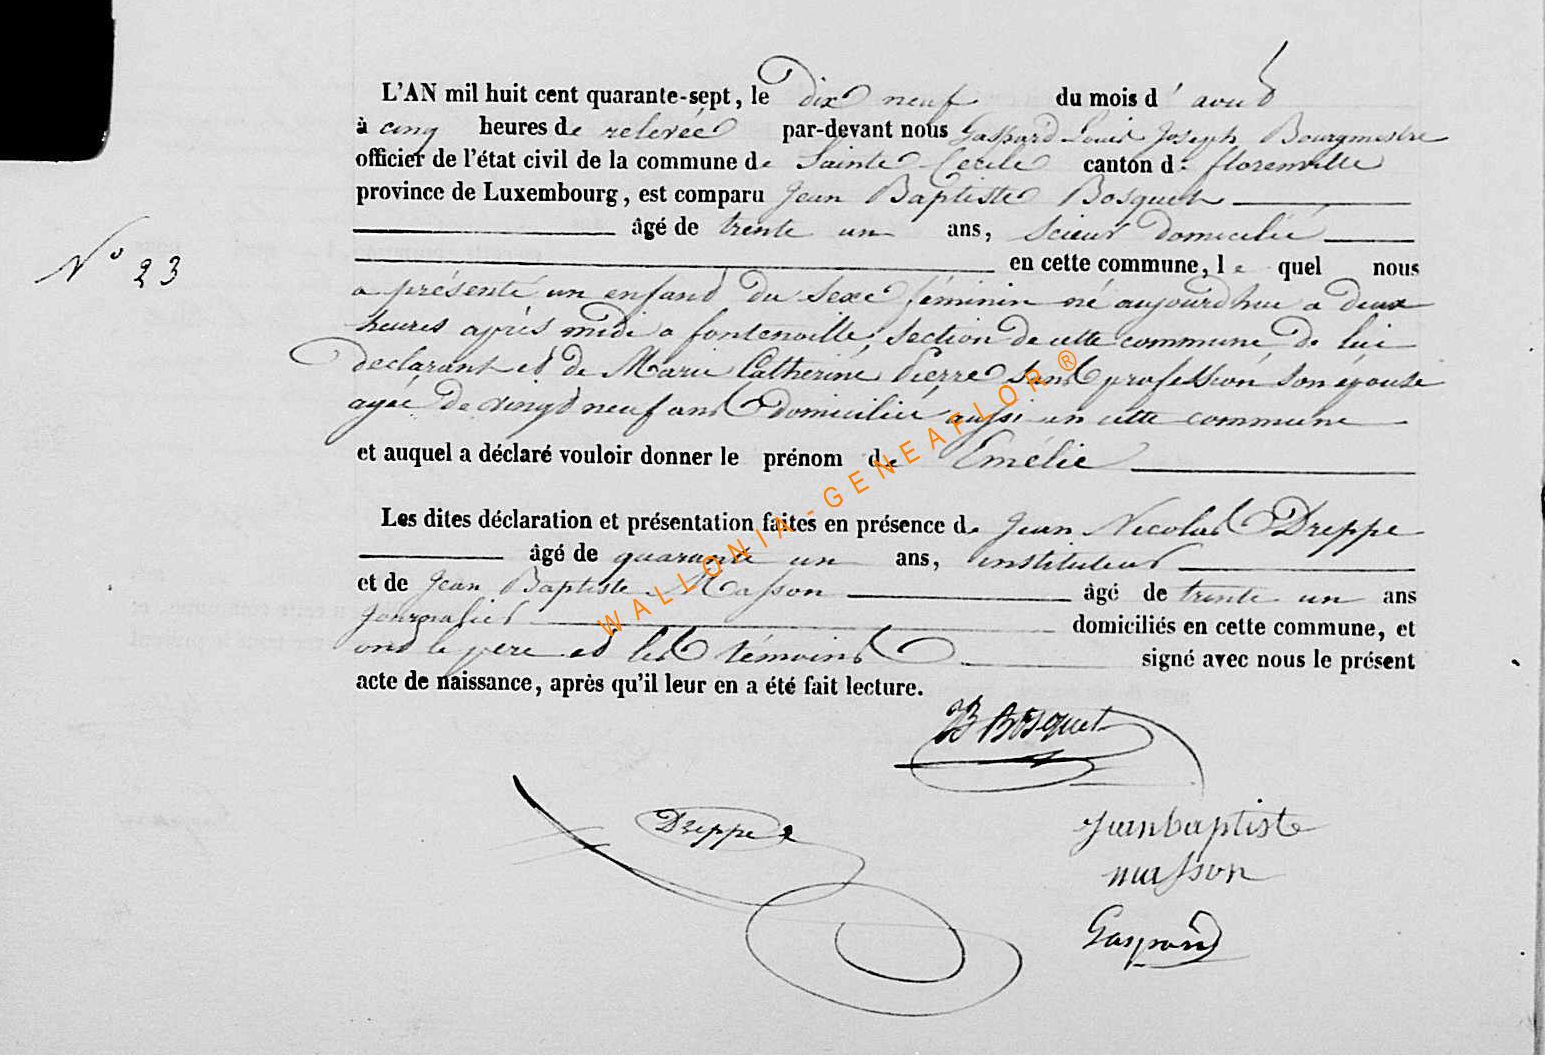 L'AN mil huit cent quarante-sept, le dix neuf du mois d' aout
à cinq heures de relevée par-devant nous Gaspard Louis Joseph, Bourgmestre
officier de l'état civil de la commune de Sainte Cecile canton de florenville
province de Luxembourg, est comparu Jean Baptiste Bosquet
âgé de trente un ans, scieur domicilié
N° 23
en cette commune, le quel nous
a présenté un enfant du sexe féminin né aujourd'hui a deux
heures après midi a fontenoille, section de cette commune de lui
déclarant et de Marie Catherine Pierre sans profession son épouse
agée de vingt neuf ans domiciliée aussi en cette commune
et auquel a déclaré vouloir donner le prénom de Emélie
Les dites déclaration et présentation faites en présence de Jean Nicolas Dreppe
âgé de quarante un ans, instituteur
et de Jean Baptiste Masson âgé de trente un ans
journalier domiciliés en cette commune, et
ont le père et les témoins signé avec nous le présent
acte de naissance, après qu'il leur en a été fait lecture.
JB Bosquet
Dreppe
Jeanbaptiste
masson
Gaspard
WALLONIA-GENEAFLOR ®